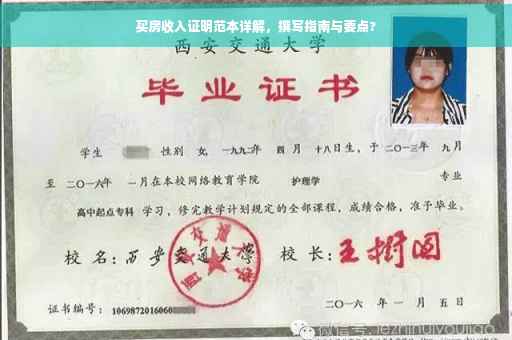 买房收入证明范本详解，撰写指南与要点？
西安交通大学
毕业证书
学生 性别 女，一九九二年 四月 十八日生，于 二〇一三年 九月
至 二〇一六年 一月在本校网络教育学院 护理学 专业
高中起点专科 学习，修完教学计划规定的全部课程，成绩合格，准予毕业。
校 名：西安交通大学 校 长：王树国
西安交通大学
证书编号：1069872016060
二〇一六 年 一 月 五 日
微信号: jiezhinuiyoujiao